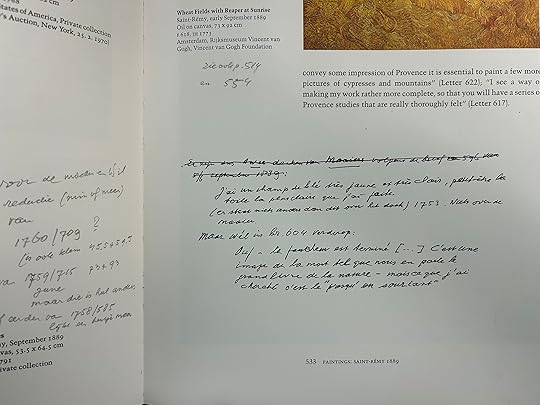 tates of America, Private collection
's Auction, New York, 25.2.1970)
Wheat Fields with Reaper at Sunrise
Saint-Rémy, early September 1889
Oil on canvas, 73 x 92 cm
F 618, JH 1773
Amsterdam, Rijksmuseum Vincent van
Gogh, Vincent van Gogh Foundation
zie ook p. 514
en 554
convey some impression of Provence it is essential to paint a few more
pictures of cypresses and mountains" (Letter 622); "I see a way o
making my work rather more complete, so that you will have a series o
Provence studies that are really thoroughly felt" (Letter 617).
van Maaiers volgens de brief
september 1889:
J'ai un champ de blé très jaune et très clair, peut-être la
toile la plus claire que j'ai faite
(er staat niets anders dan dit over het doek) 1753. Niets over de
maaier.
Maar wél in br. 604 verderop:
Ouf – le faucheur est terminé [...] C'est une
image de la mort tel que nous en parle le
grand livre de la nature – mais ce que j'ai
cherché c'est le "presqu'en souriant"
voor de
reductie (min of meer)
van
1760/709 ?
(is ook klein 45,5 x 54,5
van 1759/715 73 x 93
june
maar die is heel anders
eerder van 1758/585
lijkt er
ny, September 1889
nvas, 53.5 x 64.5 cm
791
rivate collection
533 PAINTINGS: SAINT-RÉMY 1889